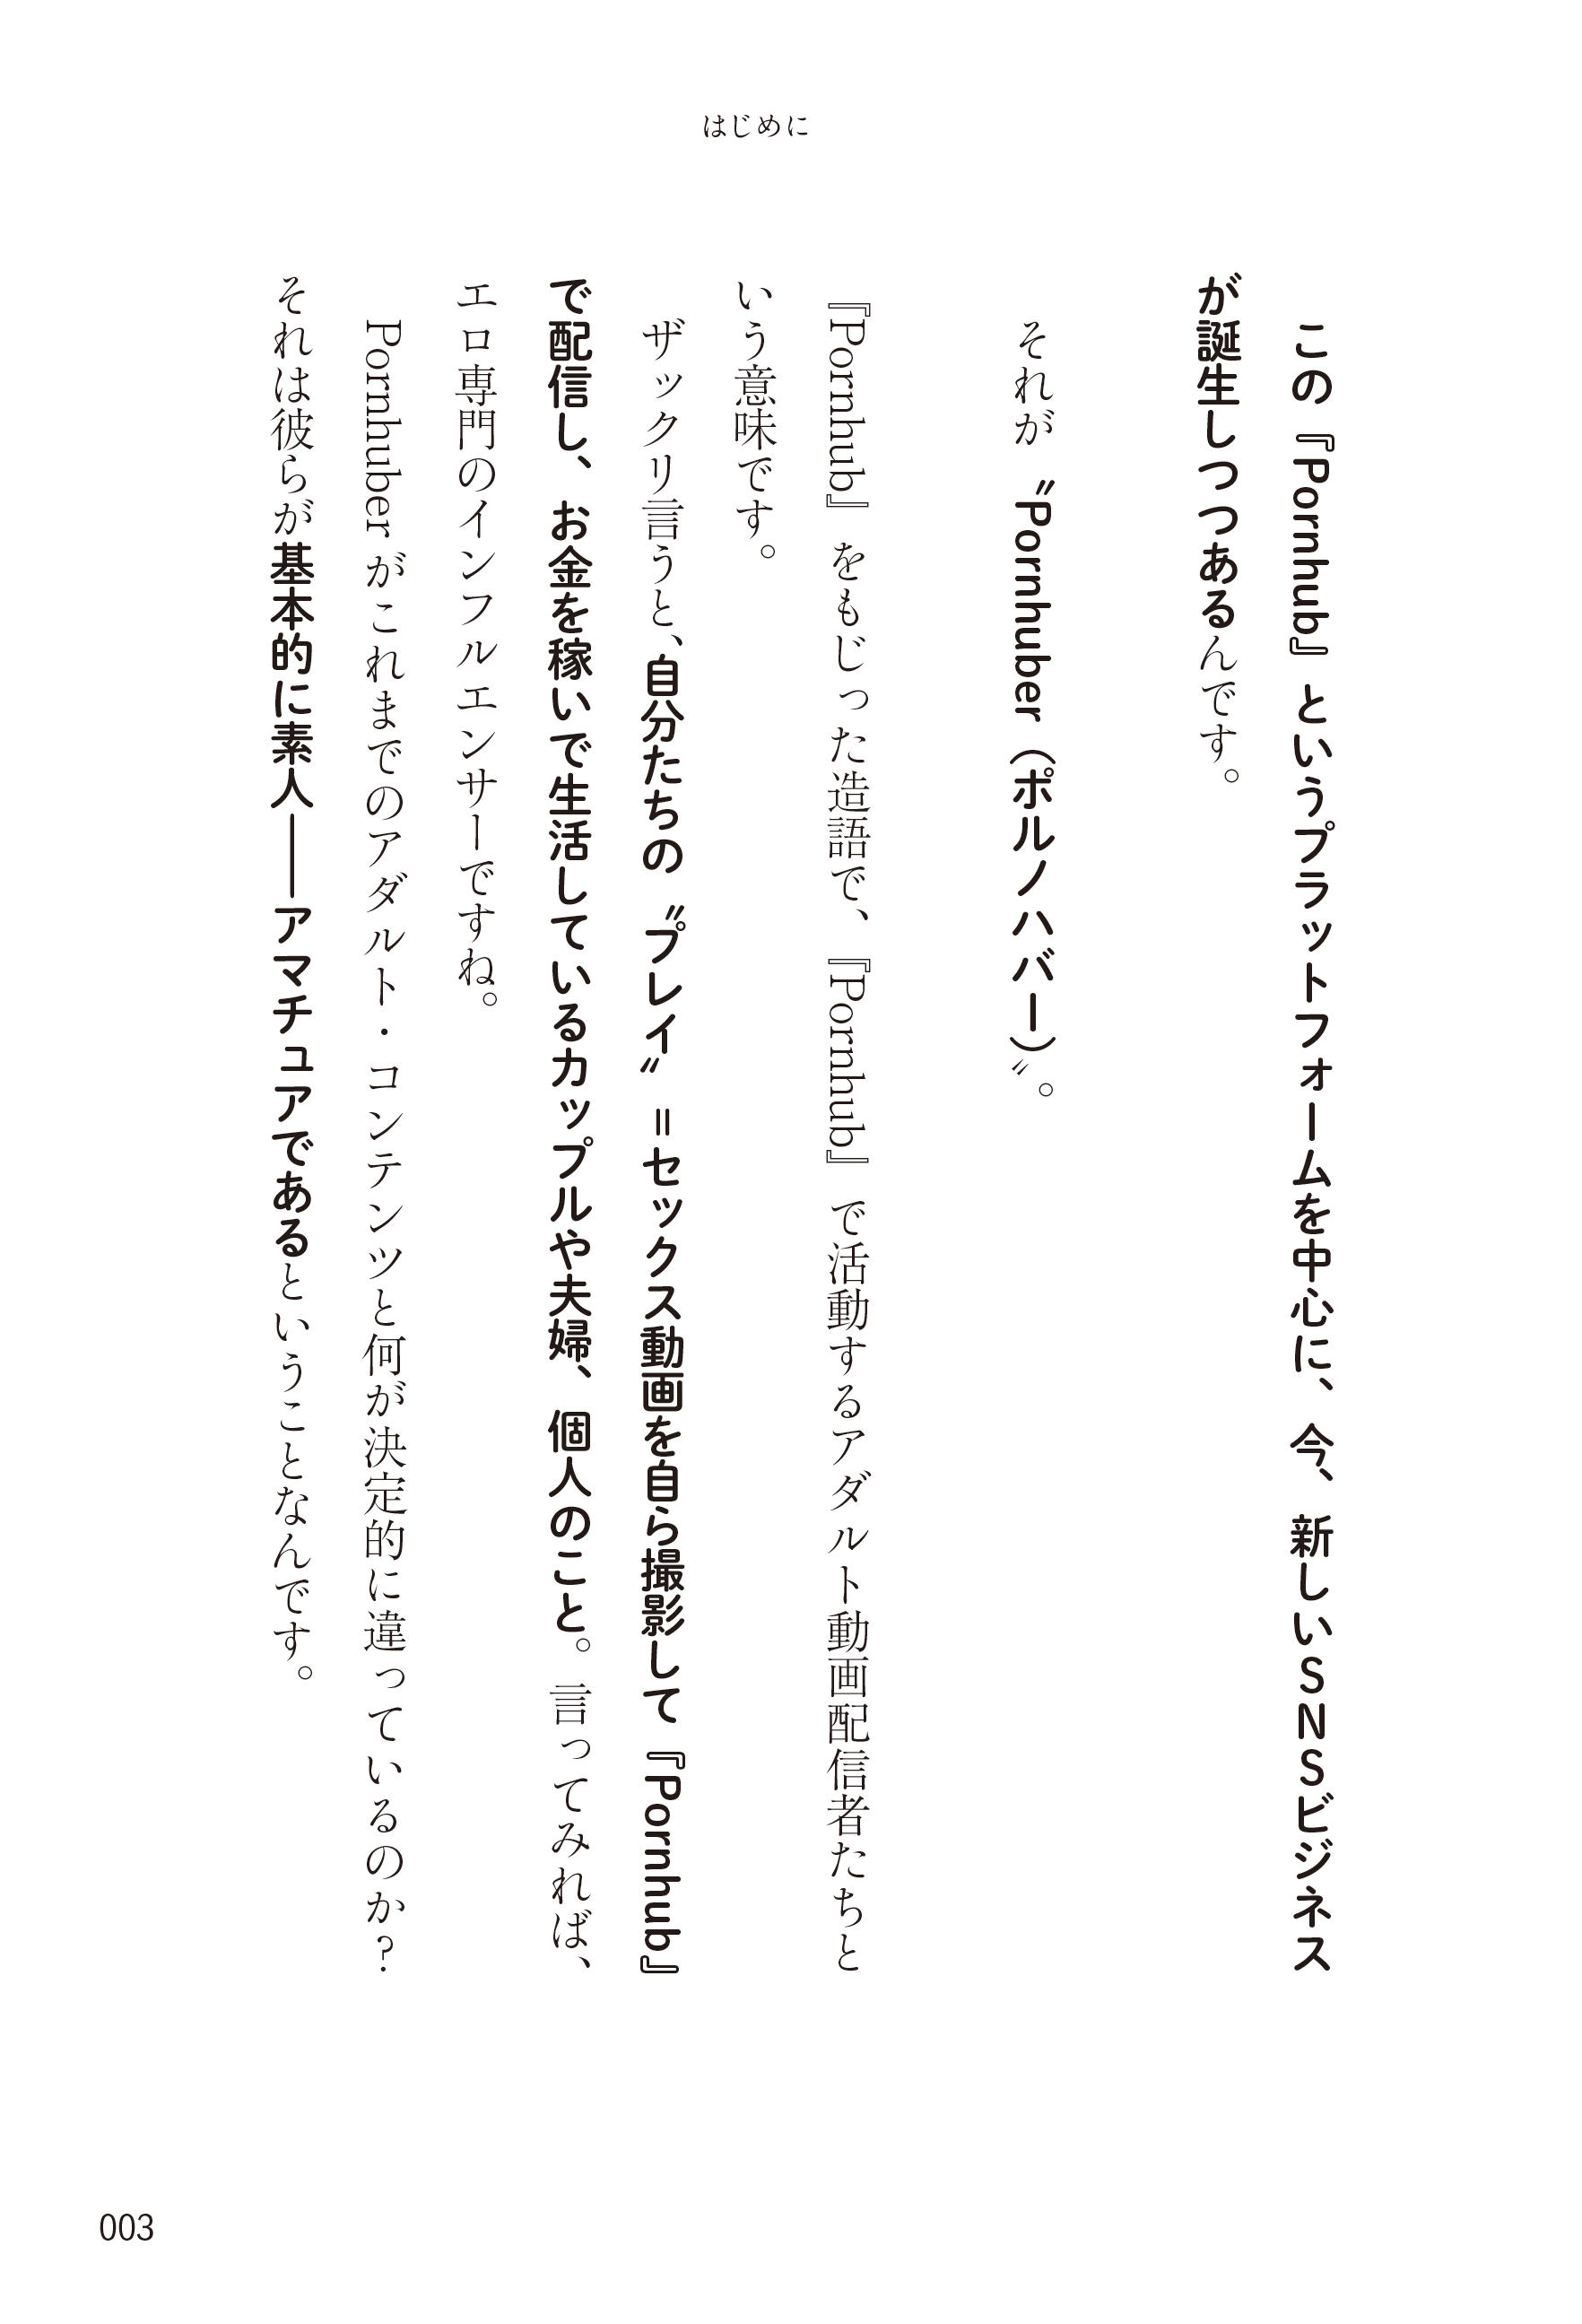 はじめに
この『Pornhub』というプラットフォームを中心に、今、新しいSNSビジネス
が誕生しつつあるんです。
それが〝Pornhuber（ポルノハバー）〟。
『Pornhub』をもじった造語で、『Pornhub』で活動するアダルト動画配信者たちと
いう意味です。
ザックリ言うと、自分たちの〝プレイ〟＝セックス動画を自ら撮影して『Pornhub』
で配信し、お金を稼いで生活しているカップルや夫婦、個人のこと。言ってみれば、
エロ専門のインフルエンサーですね。
Pornhuberがこれまでのアダルト・コンテンツと何が決定的に違っているのか？
それは彼らが基本的に素人――アマチュアであるということなんです。
003